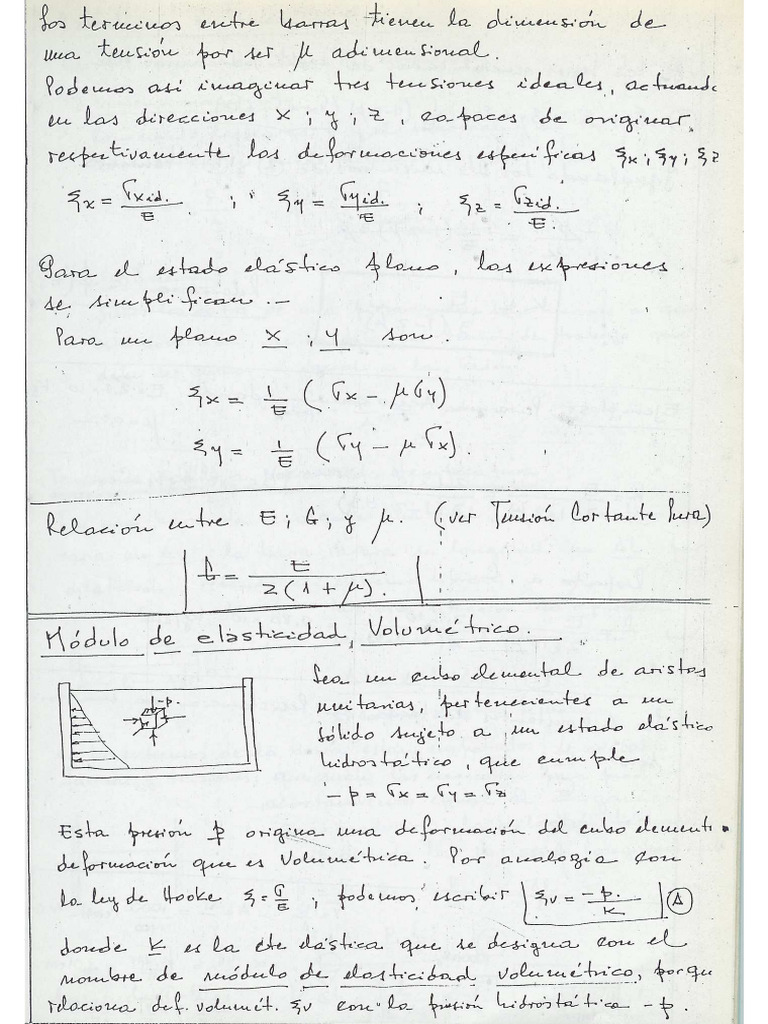 Los terminos entre barras tienen la dimensión de
una tensión por ser μ adimensional.
Podemos asi imaginar tres tensiones ideales, actuando
en las direcciones x ; y ; z , capaces de originar,
respectivamente las deformaciones específicas ξx ; ξy ; ξz
ξx = σxid. / E ; ξy = σyid. / E ; ξz = σzid. / E.
Para el estado elástico plano, las expresiones
se simplifican .-
Para un plano x ; y son.
ξx = 1/E ( σx - μσy)
ξy = 1/E (σy - μσx).
Relación entre E ; G ; y μ. (ver Tensión Cortante Pura)
G = E / 2(1 + μ).
Módulo de elasticidad, Volumétrico.
Sea un cubo elemental de aristas
unitarias, pertenecientes a un
sólido sujeto a un estado elástico
hidrostático, que cumple
-p = σx = σy = σz
-p.
Esta presión p origina una deformación del cubo element.
deformación que es Volumétrica. Por analogía con
la ley de Hooke ξ = σ/E ; podemos escribir ξv = -p. / K (A)
donde K es la cte elástica que se designa con el
nombre de módulo de elasticidad volumétrico, porque
relaciona def. volumét. ξv con la presión hidrostática -p.